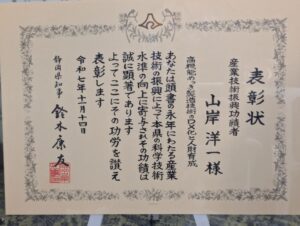 表彰状
産業技術振興功績者
山岸洋一様
高機能めっき製造技術のDX化と人財育成
あなたは頭書の永年にわたる産業
技術の振興によって本県の科学技術
水準の向上に寄与されその功績は
誠に顕著であります
よってここにその功労を讃え
表彰します
令和七年十一月十四日
静岡県知事 鈴木康友